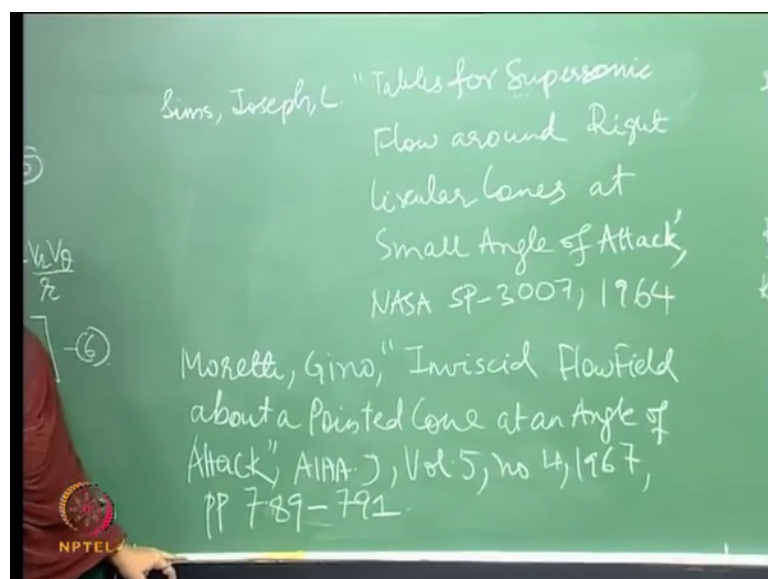 Sims, Joseph, L. "Tables for Supersonic
Flow around Right
Circular Cones at
Small Angle of Attack",
NASA SP-3007, 1964
5
VrVθ
r
] -6
Moretti, Gino, "Inviscid Flow Field
about a Pointed Cone at an Angle of
Attack", AIAA J, Vol. 5, no 4, 1967,
pp 789-791.
NPTEL